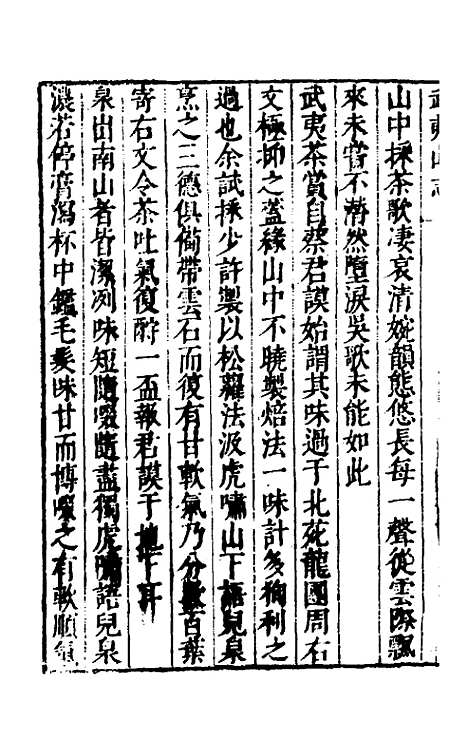 武夷山志
山中採茶歌凄哀清婉韻態悠長每一聲從雲際飄
來未嘗不潸然墮淚吳歌未能如此
武夷茶賞自蔡君謨始謂其味過于北苑龍團周右
文極抑之蓋緣山中不曉製焙法一味計多狥利之
過也余試採少許製以松蘿法汲虎嘯山下語兒泉
烹之三德俱備帶雲石而復有甘軟氣乃分數百葉
寄右文令茶吐氣復酹一盃報君謨于地下耳
泉出南山者皆潔冽味短隨啜隨盡獨虎嘯語兒泉
濃若停膏瀉杯中鑑毛髮味甘而博啜之有軟順氣